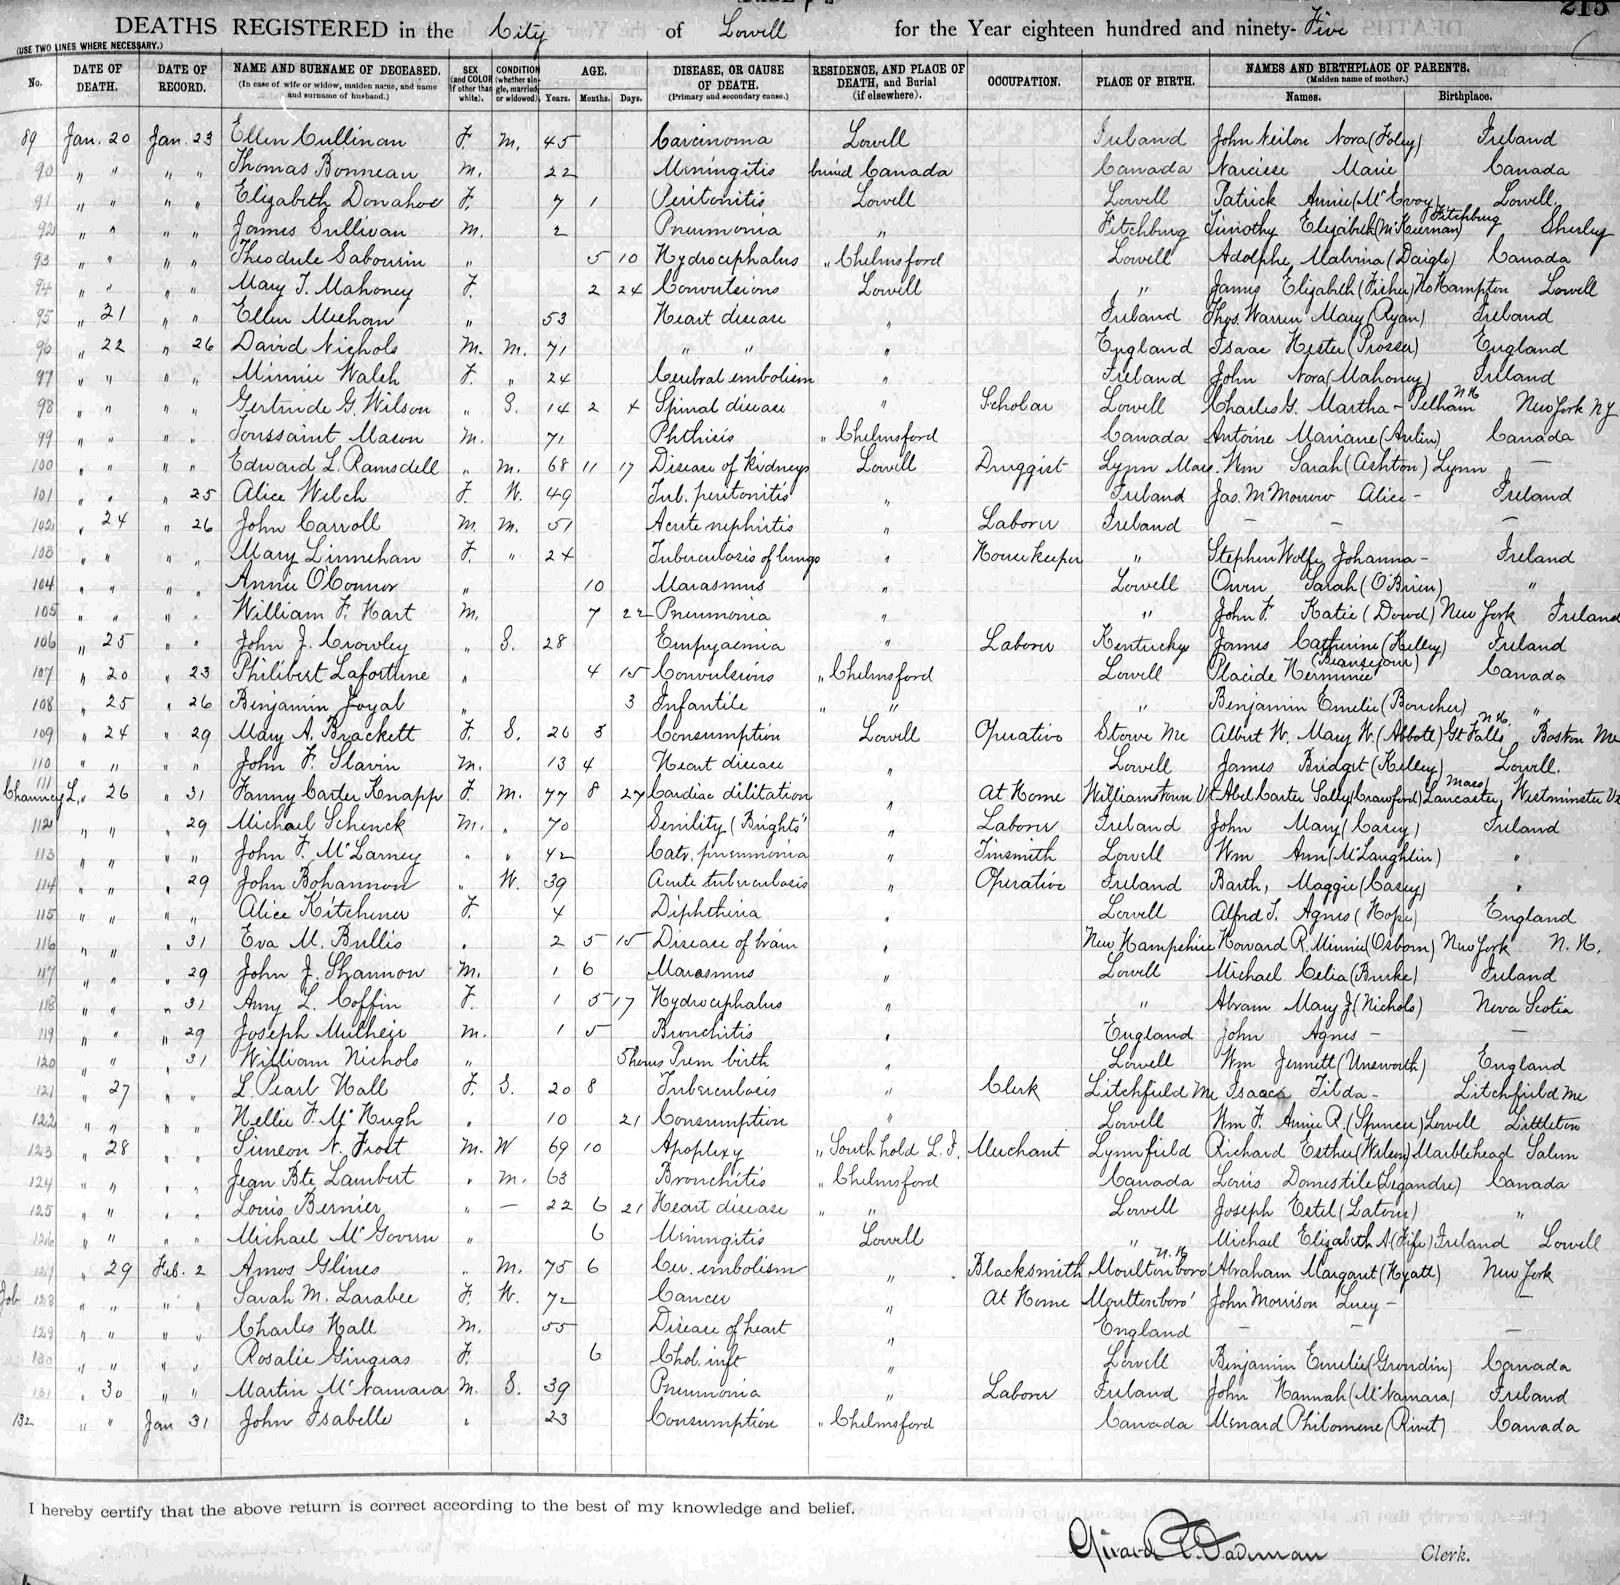 215
DEATHS REGISTERED in the City of Lowell for the Year eighteen hundred and ninety-Five
(USE TWO LINES WHERE NECESSARY.)
No. DATE OF DEATH. DATE OF RECORD. NAME AND SURNAME OF DECEASED. (In case of wife or widow, maiden name, and name and surname of husband.) SEX (and COLOR if other than white). CONDITION (whether single, married, or widowed). AGE. Years. Months. Days. DISEASE, OR CAUSE OF DEATH. (Primary and secondary cause.) RESIDENCE, AND PLACE OF DEATH, and Burial (if elsewhere). OCCUPATION. PLACE OF BIRTH. NAMES AND BIRTHPLACE OF PARENTS. (Maiden name of mother.) Names. Birthplace.
89 Jan. 20 Jan. 23 Ellen Cullinan F. M. 45 Carcinoma Lowell Ireland John Neilon Nora (Foley) Ireland
90 " " " " Thomas Bonneau M. 22 Meningitis buried Canada Canada Narcisse Marie Canada
91 " " " " Elizabeth Donahoe F. 7 1 Peritonitis Lowell Lowell Patrick Annie (McEvoy) Lowell
92 " " " " James Sullivan M. 2 Pneumonia " Fitchburg Timothy Elizabeth (McKiernan) Fitchburg Shirley
93 " " " " Theodule Sabourin " 5 10 Hydrocephalus " Chelmsford Lowell Adolphe Malvina (Daigle) Canada
94 " " " " Mary T. Mahoney F. 2 24 Convulsions Lowell " James Elizabeth (Fisher) No Hampton Lowell
95 " 21 " " Ellen Meehan " 53 Heart disease " Ireland Thos. Warren Mary (Ryan) Ireland
96 " 22 " 26 David Nichols M. M. 71 " " " England Isaac Hester (Prosser) England
97 " " " " Minnie Walsh F. " 24 Cerebral embolism " Ireland John Nora (Mahoney) Ireland
98 " " " " Gertrude G. Wilson " S. 14 2 4 Spinal disease " Scholar Lowell Charles G. Martha - Pelham NH New York NY
99 " " " " Toussaint Mason M. 71 Phthisis " Chelmsford Canada Antoine Mariane (Aulin) Canada
100 " " " " Edward L. Ramsdell " M. 68 11 17 Disease of kidneys Lowell Druggist Lynn Mass. Wm Sarah (Ashton) Lynn —
101 " " " 25 Alice Welch F. W. 49 Tub. peritonitis " Ireland Jas. McMorrow Alice - Ireland
102 " 24 " 26 John Carroll M. M. 51 Acute nephritis " Laborer Ireland — — —
103 " " " " Mary Linnehan F. " 24 Tuberculosis of lungs " Housekeeper " Stephen Wolfe Johanna - Ireland
104 " " " " Annie O'Connor " 10 Marasmus " Lowell Owen Sarah (O'Brien) "
105 " " " " William F. Hart M. 7 22 Pneumonia " " John F. Katie (Dowd) New York Ireland
106 " 25 " " John J. Crowley " S. 28 Empyaemia " Laborer Kentucky James Catherine (Kelley) Ireland
107 " 20 " 23 Philibert Lafortune " 4 15 Convulsions " Chelmsford Lowell Placide Herminie (Beausejour) Canada
108 " 25 " 26 Benjamin Joyal " 3 Infantile " " " Benjamin Emelie (Boucher) "
109 " 24 " 29 Mary A. Brackett F. S. 26 3 Consumption Lowell Operative Stowe Me Albert W. Mary W. (Abbott) Gt Falls N.H. Boston Me
110 " " " " John F. Slavin M. 13 4 Heart disease " Lowell James Bridget (Kelley) Lowell.
111 Chauncey L. " 26 " 31 Fanny Carter Knapp F. M. 77 8 27 Cardiac dilitation " At Home Williamstown Vt Abel Carter Sally (Crawford) Lancaster Mass, Westminster Vt
112 " " " 29 Michael Schenck M. " 70 Senility (Brights) " Laborer Ireland John Mary (Casey) Ireland
113 " " " " John F. McLarney " " 42 Catr. pneumonia " Tinsmith Lowell Wm Ann (McLaughlin) "
114 " " " 29 John Bohannon " W. 39 Acute tuberculosis " Operative Ireland Barth, Maggie (Casey) "
115 " " " " Alice Kitchener F. 4 Diphtheria " Lowell Alfred T. Agnes (Hope) England
116 " " " 31 Eva M. Bullis " 2 5 15 Disease of brain " New Hampshire Howard R. Minnie (Osborn) New York N.H.
117 " " " 29 John J. Shannon M. 1 6 Marasmus " Lowell Michael Celia (Burke) Ireland
118 " " " 31 Amy L. Coffin F. 1 5 17 Hydrocephalus " " Abram Mary J (Nichols) Nova Scotia
119 " " " 29 Joseph Mulheir M. 1 5 Bronchitis " England John Agnes - —
120 " " " 31 William Nichols " 5 hours Prem birth " Lowell Wm Jennett (Unsworth) England
121 " 27 " " L Pearl Hall F. S. 20 8 Tuberculosis " Clerk Litchfield Me Isaac Tilda - Litchfield Me
122 " " " " Nellie F. McHugh " 10 21 Consumption " Lowell Wm F. Annie R. (Spencer) Lowell Littleton
123 " 28 " " Simeon N. Frost M. W 69 10 Apoplexy " Southhold L.I. Merchant Lynnfield Richard Esther (Wilson) Marblehead Salem
124 " " " " Jean Bte Lambert " M. 63 Bronchitis " Chelmsford Canada Louis Domestile (Legandre) Canada
125 " " " " Louis Bernier " — 22 6 21 Heart disease " " Lowell Joseph Estel (Latour) "
126 " " " " Michael McGovern " 6 Meningitis Lowell " Michael Elizabeth A (Fife) Ireland Lowell
127 " 29 Feb. 2 Amos Glines " M. 75 6 Cer. embolism " Blacksmith Moultonboro' N.H. Abraham Margaret (Hyatt) New York
Job 128 " " " " Sarah M. Larabee F. W. 72 Cancer " At Home Moultonboro' John Morrison Lucy -
129 " " " " Charles Hall M. 55 Disease of heart " England — — —
130 " " " " Rosalie Gingras F. 6 Chol. inft " Lowell Benjamin Emelie (Grondin) Canada
131 " 30 " " Martin McNamara M. S. 39 Pneumonia " Laborer Ireland John Hannah (McNamara) Ireland
132 " " Jan 31 John Isabelle " 23 Consumption " Chelmsford Canada Menard Philomene (Rivet) Canada
I hereby certify that the above return is correct according to the best of my knowledge and belief.
Girard P. Dadman Clerk.